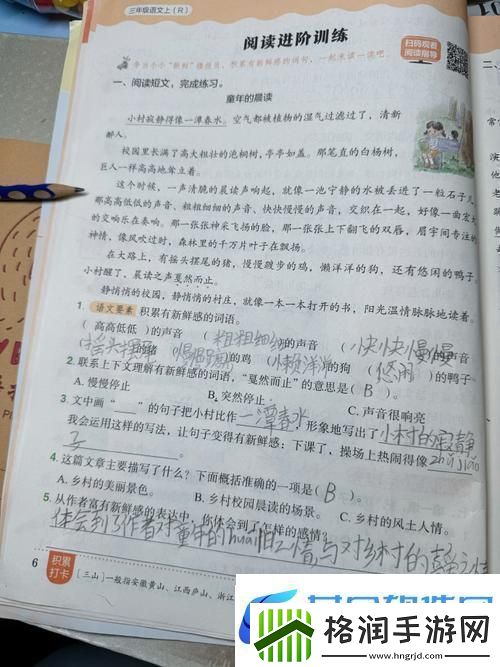 三年级语文上（R）
阅读进阶训练
扫码观看
阅读指导
争当小小“新鲜”播报员，积累有新鲜感的词句，一起来读一读吧。
一、阅读短文，完成练习。
童年的晨读
小村寂静得像一潭春水。空气都被植物的湿气过滤过了，清新
醉人。
校园里长满了高大粗壮的泡桐树，亭亭如盖。那笔直的白杨树，
巨人一样高高地耸立着。
这个时候，一声清脆的晨读声响起，就像一池宁静的水被丢进了一粒石子
那高高低低的声音、粗粗细细的声音、快快慢慢的声音，交织在一起，好像一曲宏大
的交响乐在奏响。那一张张神采飞扬的脸，那一张张上下翻飞的双唇，眉宇间专注的
神情，像风吹过时，森林里的千万片叶子在飘扬。
在大路上，有摇头摆尾的猪，慢慢踱步的鸡，懒洋洋的狗，还有悠闲的鸭子
小村醒了，晨读之声戛然而止。
静悄悄的校园，静悄悄的村庄，就像一本一本打开的书，阳光温情脉脉地读着。
1. 语文要素 积累有新鲜感的词语。
（高高低低）的声音 （粗粗细细）的声音 （快快慢慢）的声音
（摇头摆尾）的猪 的鸡 （懒洋洋）的狗 （悠闲）的鸭子
2. 联系上下文理解有新鲜感的词语，“戛然而止”的意思是（B）。
A. 慢慢停止 B. 突然停止 C. 声音很响亮
3. 文中画“____”的句子把小村比作一潭春水，形象地写出了小村的寂静
我会运用这样的写法，让句子变得有新鲜感：下课了，操场上热闹得像zhǔ jiǎo
子
4. 这篇文章主要描写了什么？下面概括准确的一项是（B）。
A. 乡村的美丽景色。 B. 乡村校园晨读的场景。 C. 乡村的风土人情。
5. 从作者富有新鲜感的表达中，你体会到了怎样的感情？
体会到了作者对童年的huái旧之情，与对乡村的喜之情
6
积累
打卡
［三山］一般指安徽黄山、江西庐山、浙江
格润手游网
www.hngrjd.com